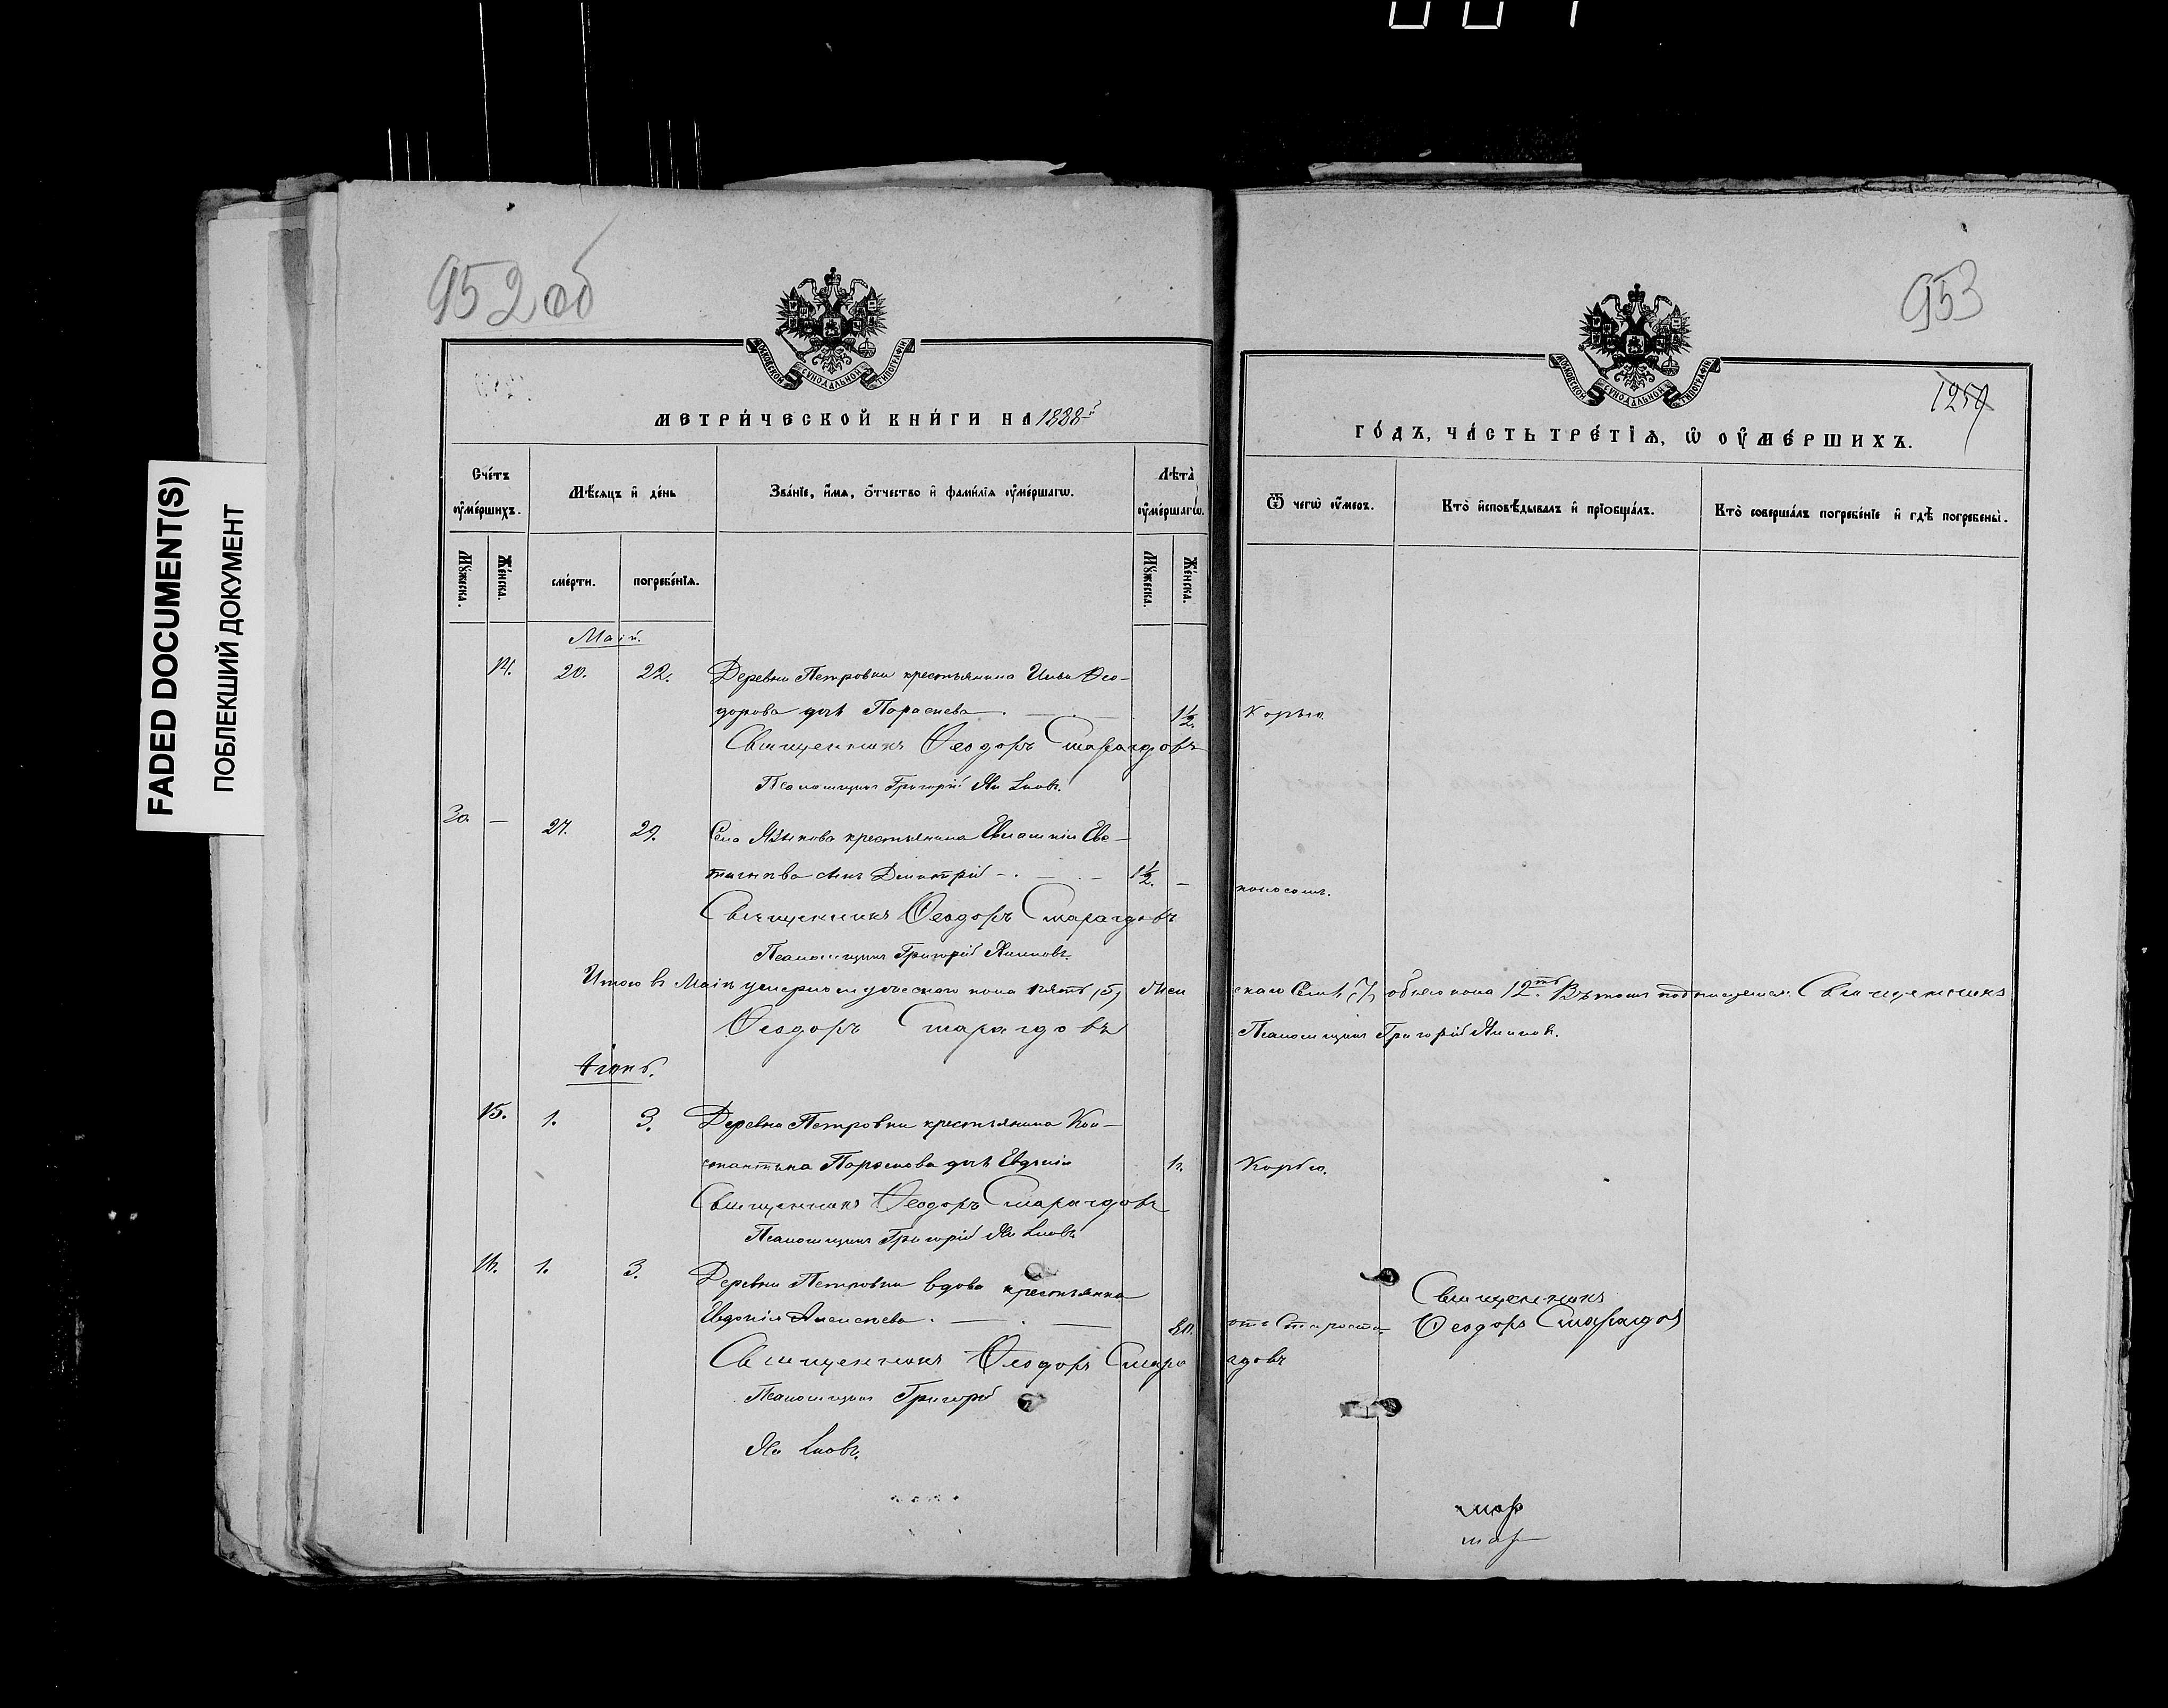 FADED DOCUMENT(S)
ПОБЛЕКШИЙ ДОКУМЕНТ
952 об
МОСКОВСКОЙ СУНОДАЛЬНОЙ ТИПОГРАФІИ
МЕТРИ́ЧЕСКОЙ КНИ́ГИ НА 1888-й
Сче́тъ ᲂу҆ме́ршихъ.
Мѣ́сяцъ и҆ де́нь
Зва́нїе, и҆́мѧ, ѻ҆́тчество и҆ фами́лїѧ ᲂу҆ме́ршагѡ.
Лѣта̀ ᲂу҆ме́ршагѡ.
Мꙋ́жеска.
Же́нска.
сме́рти.
погребе́нїѧ.
Мꙋ́жеска.
Же́нска.
Май.
14. 20. 22. Деревни Петровки крестьянина Ильи Ѳео-
дорова дочь Параскева 1½.
Священникъ Ѳеодоръ Смарагдовъ
Псаломщикъ Григорій
30. — 27. 29. Села Языкова крестьянина Ев-
сынъ Димитрій 1½. —
Священникъ Ѳеодоръ Смарагдовъ
Псаломщикъ Григорій
Итого въ Маѣ умерло мужескаго пола пять (5), жен
Ѳеодоръ Смарагдовъ
Іюнь.
15. 1. 3. Деревни Петровки крестьянина Кон-
стантина дочь Евдокія 1 г.
Священникъ Ѳеодоръ Смарагдовъ
Псаломщикъ Григорій
16. 1. 3. Деревни Петровки вдова крестьянка
Евдокія Алексѣева 80.
Священникъ Ѳеодоръ Смара
Псаломщикъ Григорій
953
1259
МОСКОВСКОЙ СУНОДАЛЬНОЙ ТИПОГРАФІИ
ГО́ДЪ, ЧА́СТЬ ТРЕ́ТЇѦ, Ѡ҆ ОУ҆МЕ́РШИХЪ.
Ѿ чегѡ̀ ᲂу҆́меръ.
Кто̀ и҆сповѣ́дывалъ и҆ прїѡбща́лъ.
Кто̀ соверша́лъ погребе́нїе и҆ гдѣ̀ погребены̀.
Корью.
поносомъ.
скаго Семь (7), обоего пола 12-ть Въ томъ подписуемся: Священникъ
Псаломщикъ Григорій
Корью.
отъ Старости Священникъ
Ѳеодоръ Смарагдов
гдовъ
мар
мар